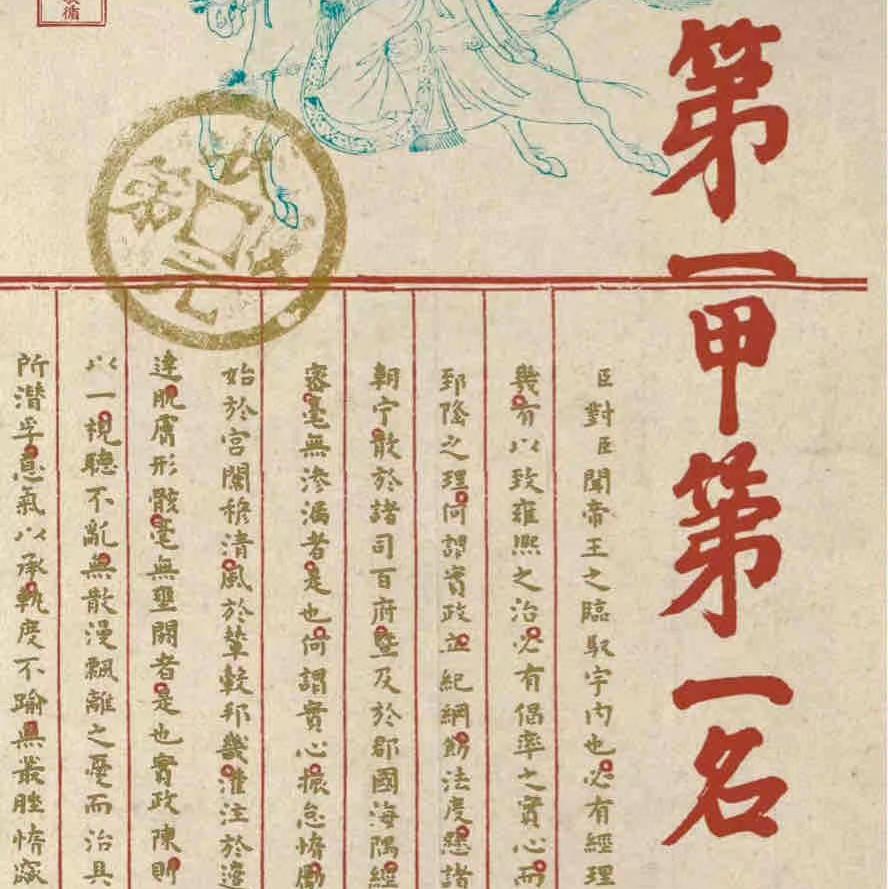 第一甲第一名
臣對臣聞帝王之臨馭宇内也必有經理
幾有以致雍熙之治必有倡率之實心而
郅隆之理何謂實政立紀綱飭法度懸諸
朝宁散於諸司百府暨及於郡國海隅經
密毫無滲漏者是也何謂實心振怠惰勵
始於宮闈穆清風於輦轂邦畿灌注於邊
達肌膚形骸毫無壅閼者是也實政陳則
以一視聽不亂無散漫飄離之憂而治具
所潛孚意氣以承軌度不踰無叢脞惰窳
狀元及第